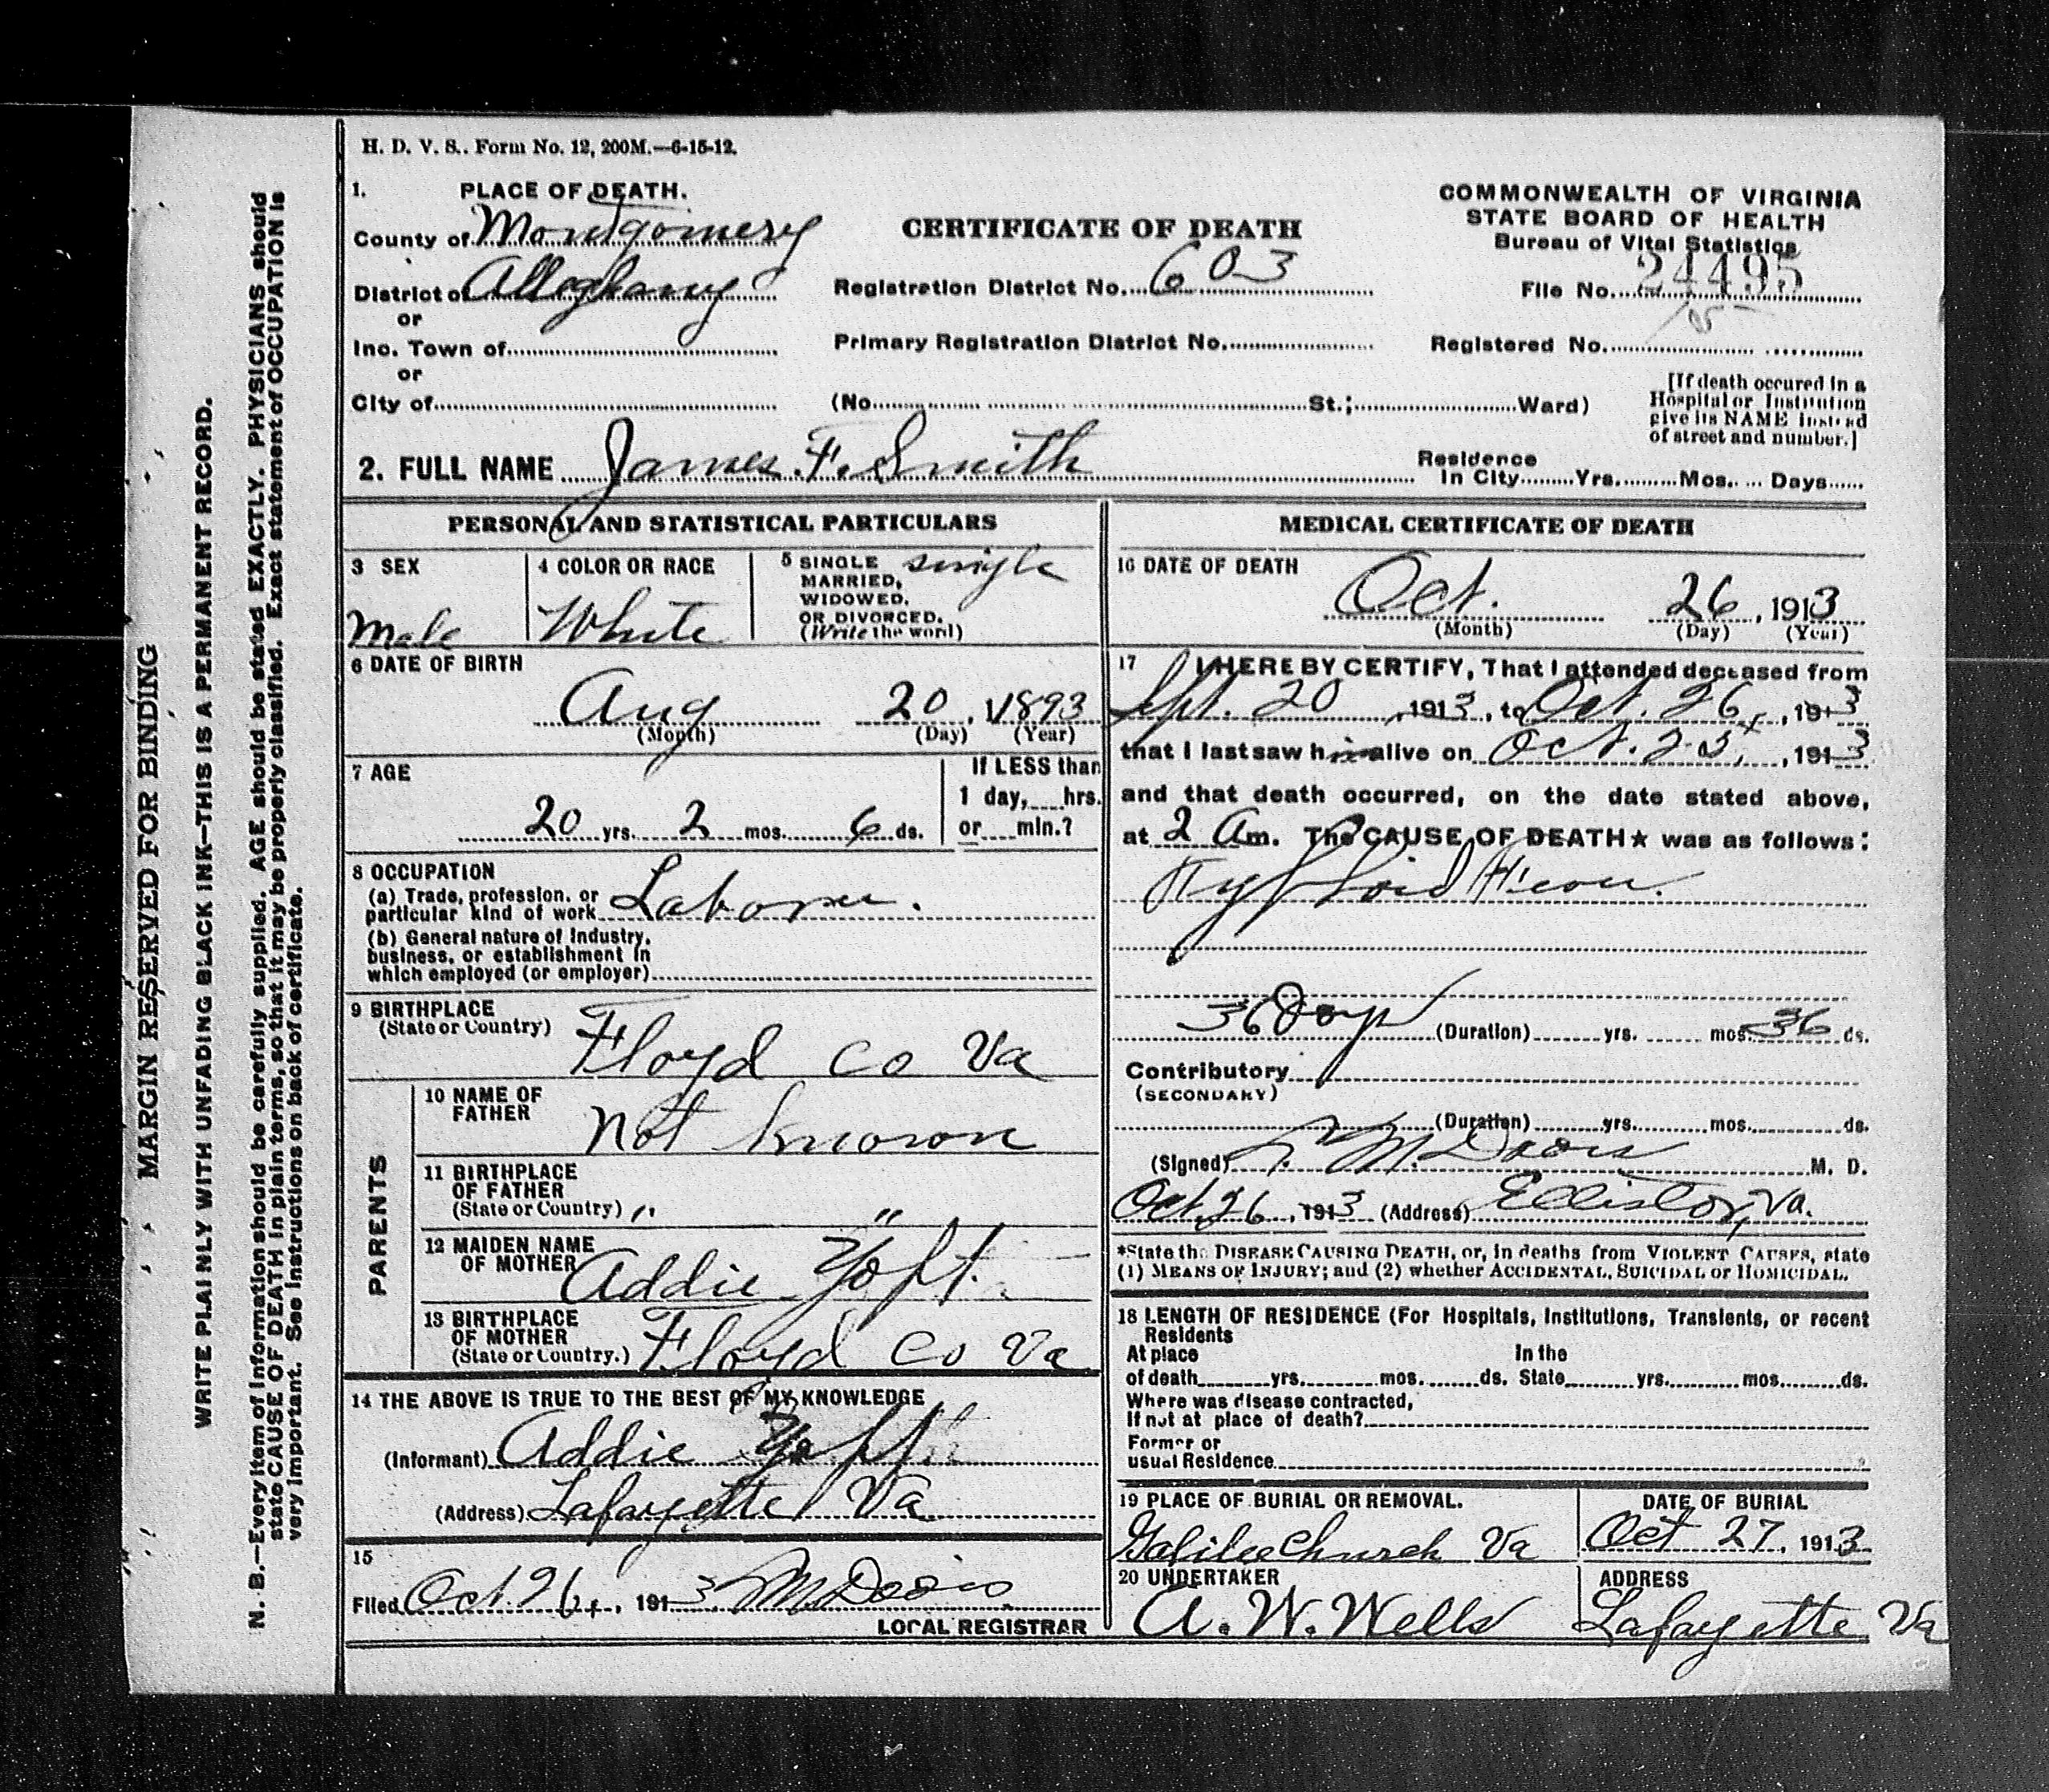 H. D. V. S.. Form No. 12, 200M.—6-15-12.
1. PLACE OF DEATH.
County of Montgomery
District of Alleghany
or
Inc. Town of
or
City of
CERTIFICATE OF DEATH
Registration District No. 603
Primary Registration District No.
(No. St.; Ward)
COMMONWEALTH OF VIRGINIA
STATE BOARD OF HEALTH
Bureau of Vital Statistics
File No. 24495
Registered No.
[If death occured in a
Hospital or Institution
give its NAME instead
of street and number.]
2. FULL NAME James F. Smith
Residence
In City Yrs. Mos. Days
PERSONAL AND STATISTICAL PARTICULARS
3 SEX
Male
4 COLOR OR RACE
White
5 SINGLE
MARRIED,
WIDOWED,
OR DIVORCED.
(Write the word)
single
6 DATE OF BIRTH
Aug 20, 1893
(Month) (Day) (Year)
7 AGE
20 yrs. 2 mos. 6 ds.
If LESS than
1 day, hrs.
or min.?
8 OCCUPATION
(a) Trade, profession, or
particular kind of work Laborer.
(b) General nature of Industry,
business, or establishment in
which employed (or employer)
9 BIRTHPLACE
(State or Country) Floyd Co Va
PARENTS
10 NAME OF
FATHER
not known
11 BIRTHPLACE
OF FATHER
(State or Country) " "
12 MAIDEN NAME
OF MOTHER Addie
13 BIRTHPLACE
OF MOTHER
(State or Country.) Floyd Co Va
14 THE ABOVE IS TRUE TO THE BEST OF MY KNOWLEDGE
(Informant) Addie
(Address) Lafayette Va
15
Filed Oct. 26, 1913. M Davis
LOCAL REGISTRAR
MEDICAL CERTIFICATE OF DEATH
16 DATE OF DEATH
Oct. 26, 1913
(Month) (Day) (Year)
17 I HEREBY CERTIFY, That I attended deceased from
Sept. 20, 1913, to Oct. 26, 1913
that I last saw him alive on Oct. 25, 1913
and that death occurred, on the date stated above,
at 2 Am. The CAUSE OF DEATH★ was as follows:
Typhoid Fever.
36 Days (Duration) yrs. mos. 36 ds.
Contributory
(SECONDARY)
(Duration) yrs. mos. ds.
(Signed) M. Davis M. D.
Oct. 26, 1913 (Address) Elliston, Va.
*State the DISEASE CAUSING DEATH, or, in deaths from VIOLENT CAUSES, state
(1) MEANS OF INJURY; and (2) whether ACCIDENTAL, SUICIDAL or HOMICIDAL.
18 LENGTH OF RESIDENCE (For Hospitals, Institutions, Transients, or recent
Residents
At place In the
of death yrs. mos. ds. State yrs. mos. ds.
Where was disease contracted,
If not at place of death?
Former or
usual Residence
19 PLACE OF BURIAL OR REMOVAL.
Galilee Church Va
DATE OF BURIAL
Oct 27, 1913
20 UNDERTAKER
A. W. Wells
ADDRESS
Lafayette Va
MARGIN RESERVED FOR BINDING
WRITE PLAINLY WITH UNFADING BLACK INK—THIS IS A PERMANENT RECORD.
N. B.—Every item of information should be carefully supplied. AGE should be stated EXACTLY. PHYSICIANS should
state CAUSE OF DEATH in plain terms, so that it may be properly classified. Exact statement of OCCUPATION is
very important. See instructions on back of certificate.